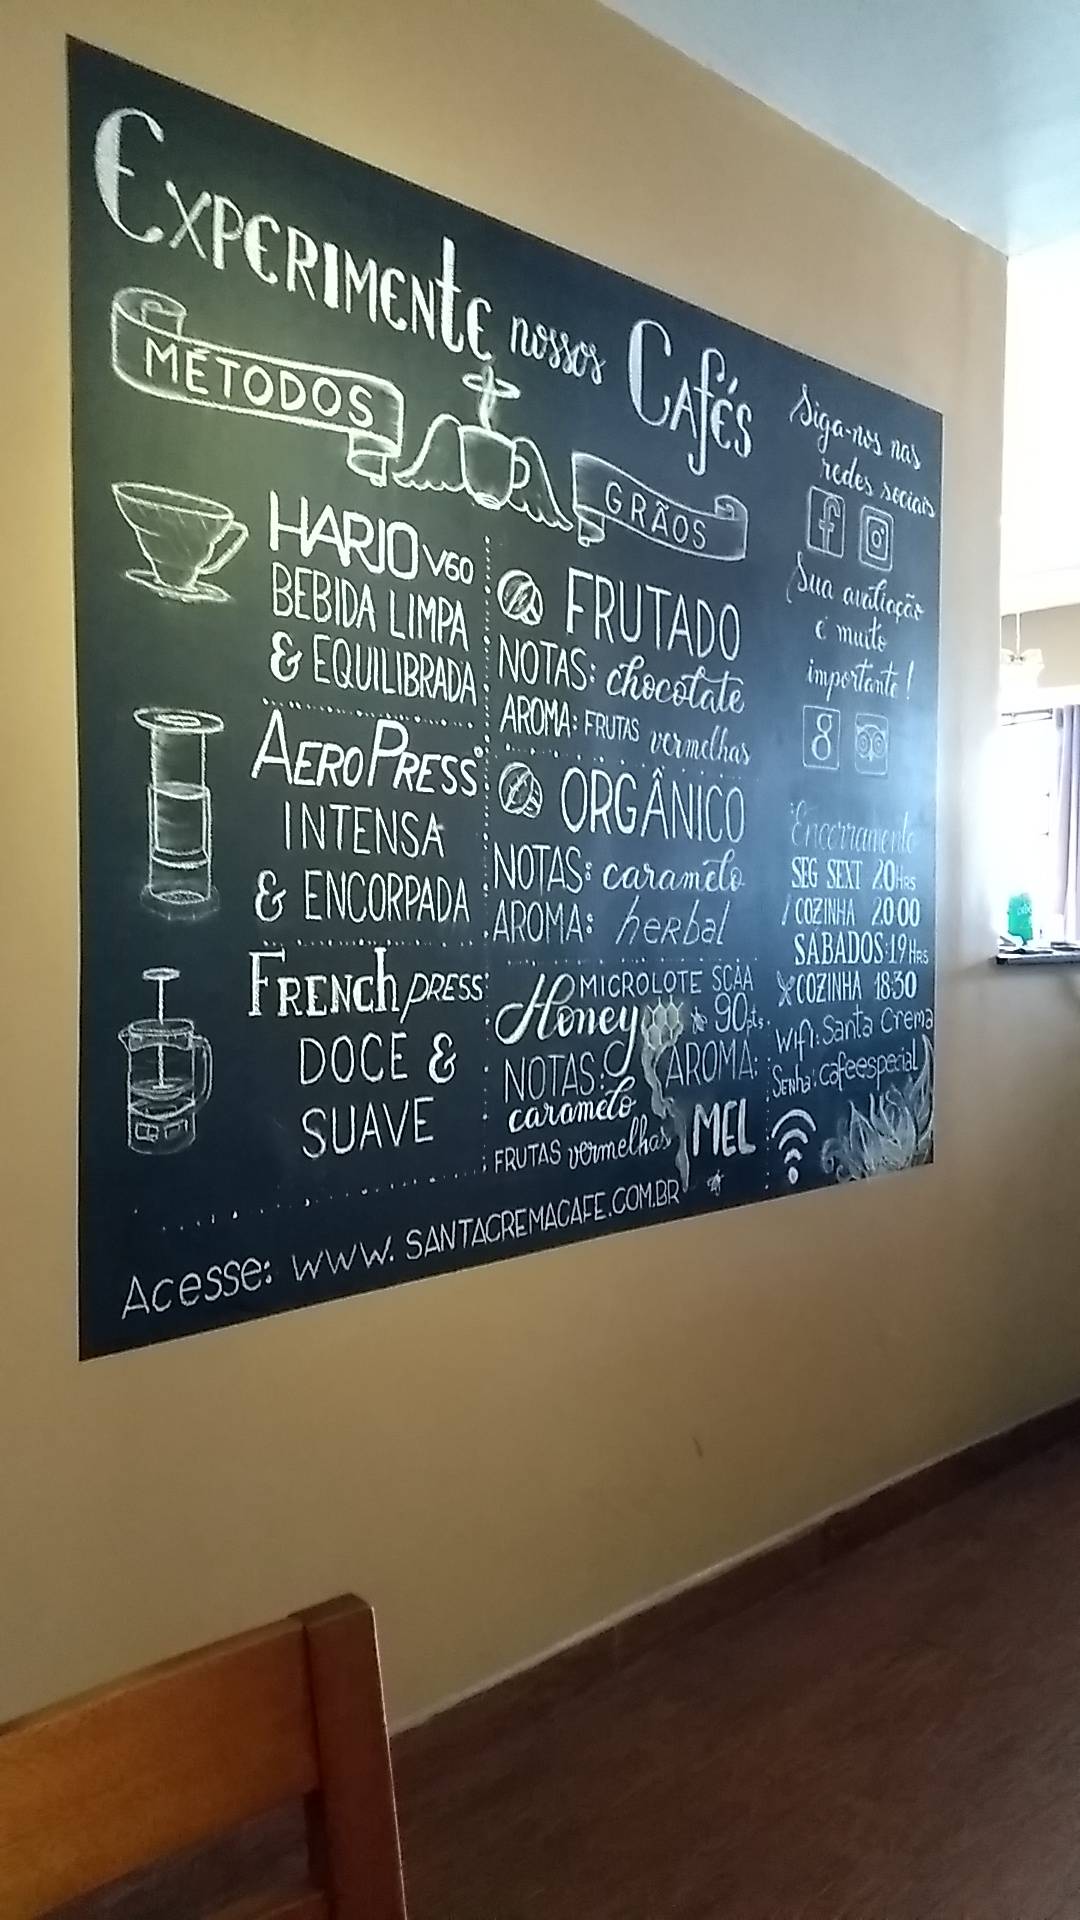 Experimente nossos Cafés
MÉTODOS
HARIO V60
BEBIDA LIMPA
& EQUILIBRADA
AEROPRESS
INTENSA
& ENCORPADA
FRENCH PRESS
DOCE &
SUAVE
GRÃOS
FRUTADO
NOTAS: chocolate
AROMA: FRUTAS vermelhas
ORGÂNICO
NOTAS: caramelo
AROMA: herbal
MICROLOTE SCAA
Honey 90pts.
NOTAS: AROMA:
caramelo
FRUTAS vermelhas MEL
Siga-nos nas
redes sociais
f
Sua avaliação
é muito
importante!
8
Encerramento
SEG SEXT 20HRS
COZINHA 20:00
SÁBADOS:19HRS
COZINHA 18:30
Wifi: Santa Crema
Senha: cafeespecial
Acesse: WWW.SANTACREMACAFE.COM.BR